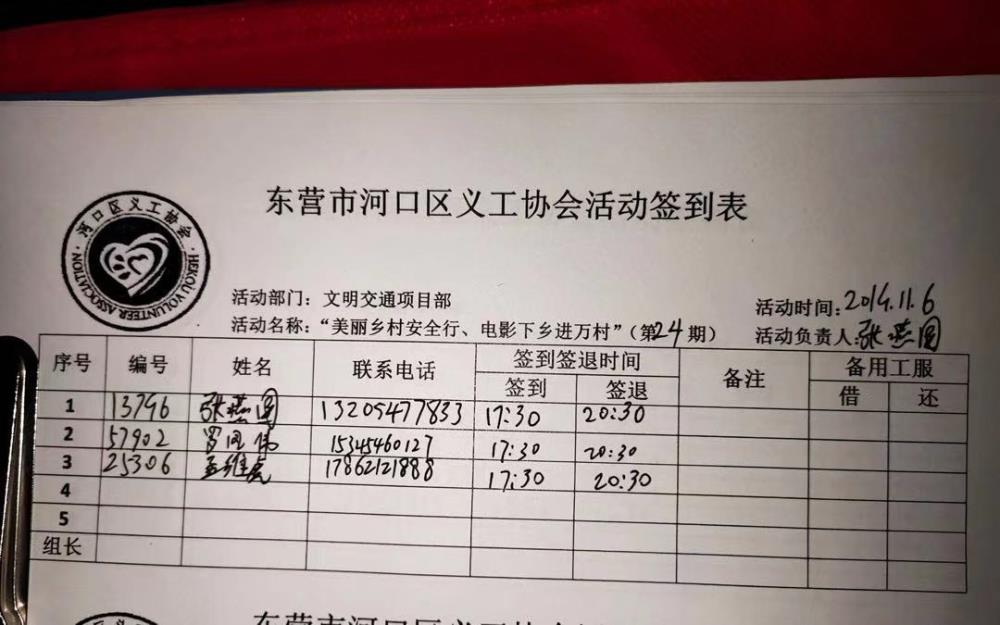 东营市河口区义工协会活动签到表
河口区义工协会
HEKOU VOLUNTEER ASSOCIATION
活动部门：文明交通项目部
活动时间：2019.11.6
活动名称：“美丽乡村安全行、电影下乡进万村”（第24期）
活动负责人：张燕
序号 编号 姓名 联系电话 签到签退时间 备注 备用工服
签到 签退 借 还
1 13796 张燕 13205477833 17:30 20:30
2 57902 罗 伟 15345460127 17:30 20:30
3 25306 孟维虎 17862121888 17:30 20:30
4
5
组长